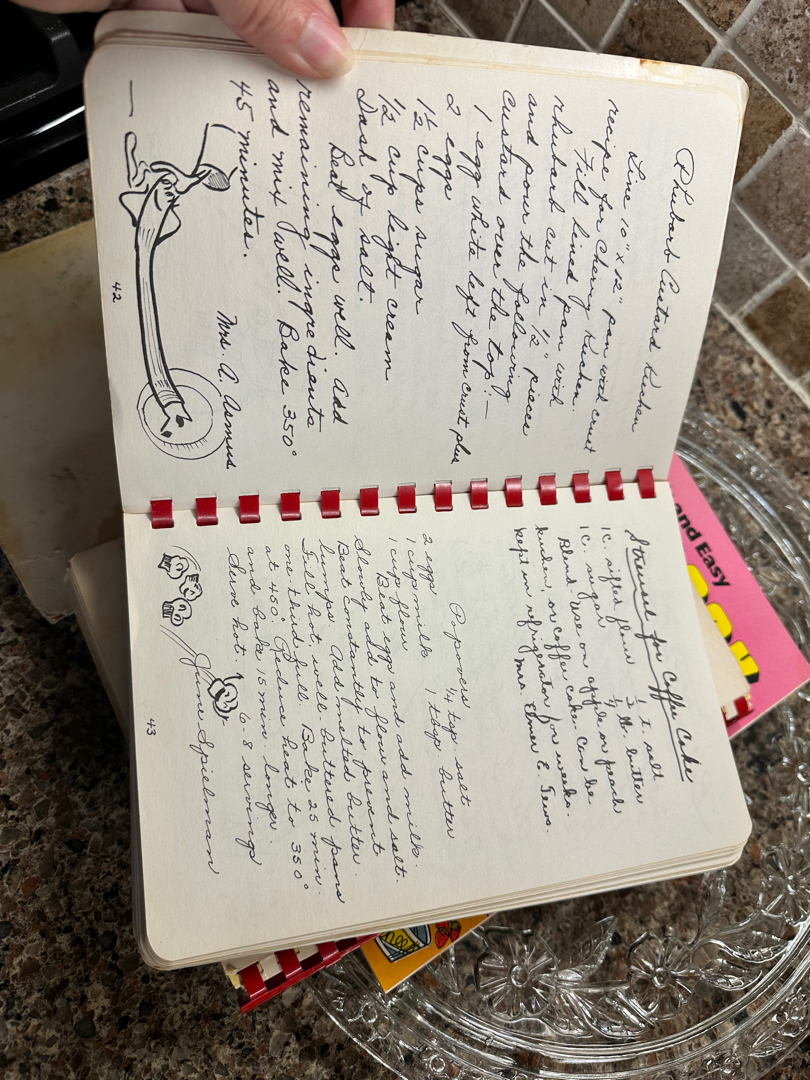 Rhubarb Custard Kuchen
Line 10" x 12" pan with crust
recipe for Cherry Kuchen.
Fill lined pan with
rhubarb cut in 1/2" pieces
and pour the following
custard over the top:—
1 egg white left from crust plus
2 eggs
1 1/2 cups sugar
1/2 cup light cream
Dash of salt.
Beat eggs well. Add
remaining ingredients
and mix well. Bake 350°
45 minutes.
Mrs. A. Asmus
42
Streusel for Coffee Cake
1 c. sifted flour 1 t. salt
1 c. sugar 1/2 lb. butter
Blend. Use on apple or peach
kuchen, or coffee cake. Can be
kept in refrigerator for weeks.
Mrs. Elmer E.
Popovers
2 eggs 1/4 tsp. salt
1 cup milk 1 tbsp. butter
1 cup flour
Beat eggs and add milk.
Slowly add to flour and salt.
Beat constantly to prevent
lumps. Add melted butter.
Fill hot, well-buttered pans
one-third full. Bake 25 min.
at 450°. Reduce heat to 350°
and bake 15 min. longer.
Serve hot. 6-8 servings
June Spielman
43
and Easy